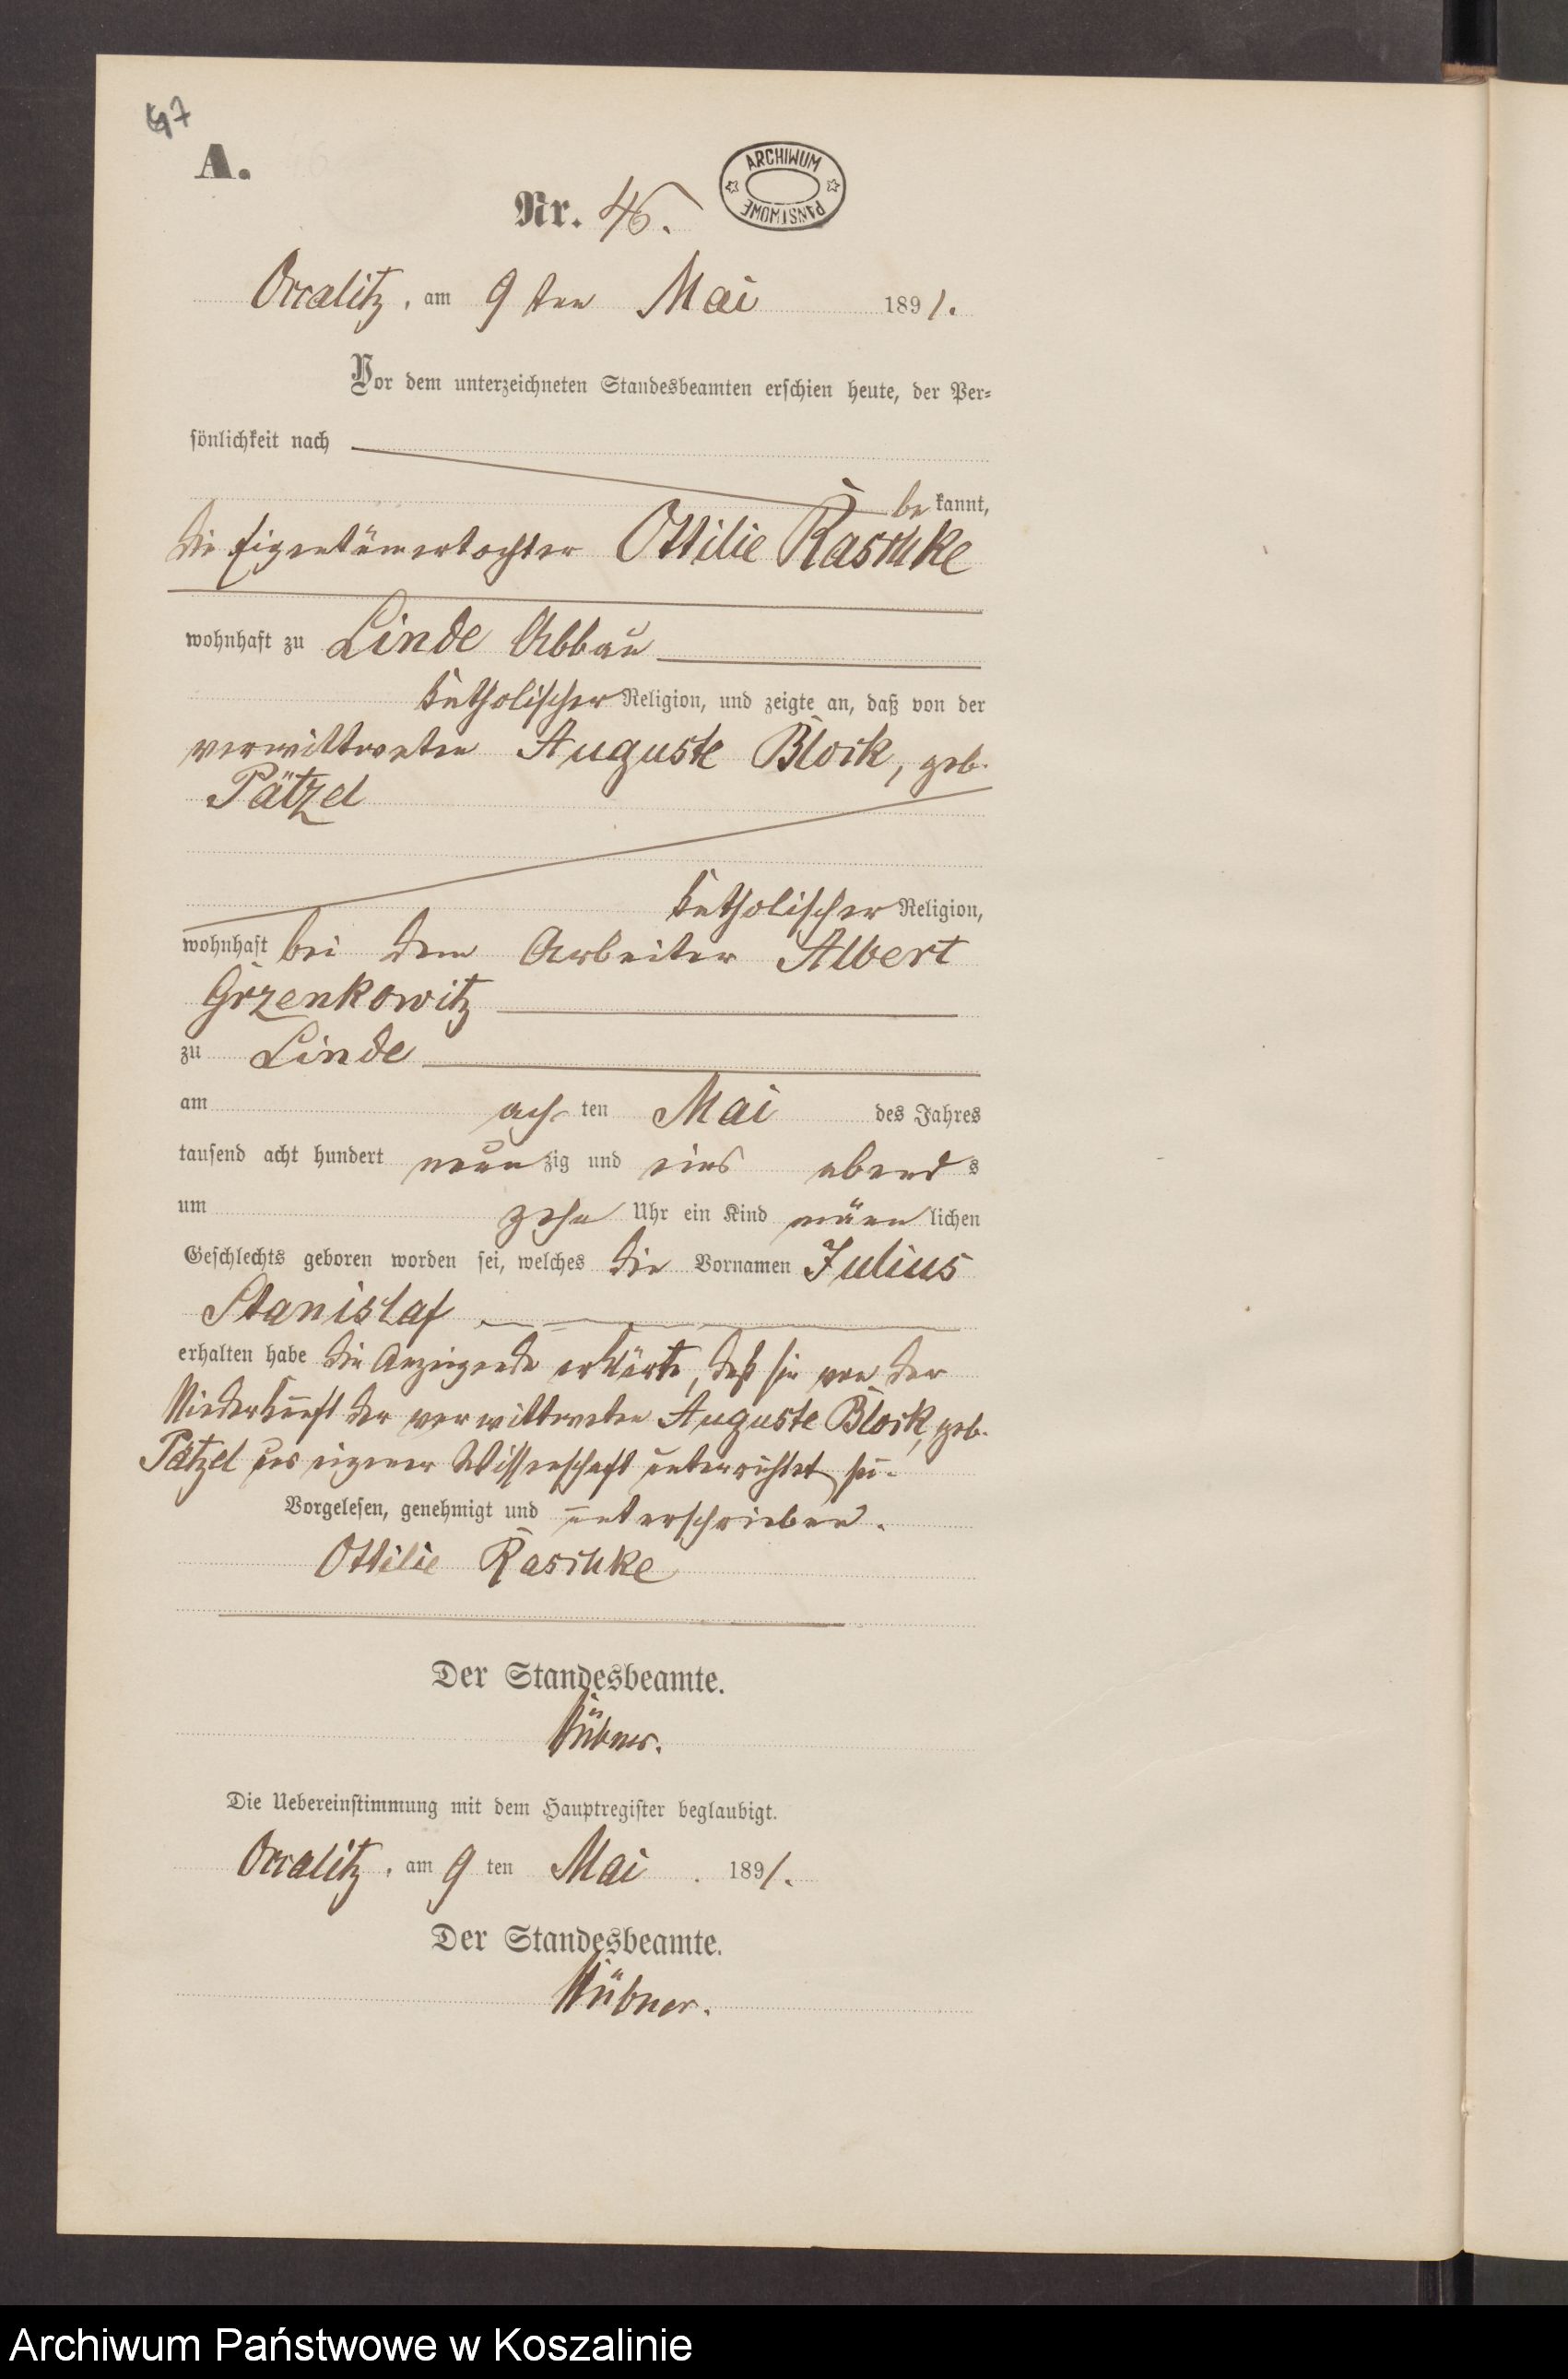 47
A.
Nr. 46.
ARCHIWUM PAŃSTWOWE
Occalitz, am 9 ten Mai 1891.
Vor dem unterzeichneten Standesbeamten erschien heute, der Per-
sönlichkeit nach
be kannt,
die Eigentümertochter Ottilie Raschke
wohnhaft zu Linde Abbau
katholischer Religion, und zeigte an, daß von der
verwittweten Auguste Block, geb.
Pätzel
katholischer Religion,
wohnhaft bei dem Arbeiter Albert
Grzenkowitz
zu Linde
am ach ten Mai des Jahres
tausend acht hundert neun zig und eins abend s
um zehn Uhr ein Kind männ lichen
Geschlechts geboren worden sei, welches die Vornamen Julius
Stanislaf
erhalten habe die Anzeigende erklärte, daß sie von der
Niederkunft der verwittweten Auguste Block, geb.
Pätzel aus eigener Wissenschaft unterrichtet sei.
Vorgelesen, genehmigt und unterschrieben.
Ottilie Raschke
Der Standesbeamte.
Hübner.
Die Uebereinstimmung mit dem Hauptregister beglaubigt.
Occalitz, am 9 ten Mai 1891.
Der Standesbeamte.
Hübner.
Archiwum Państwowe w Koszalinie